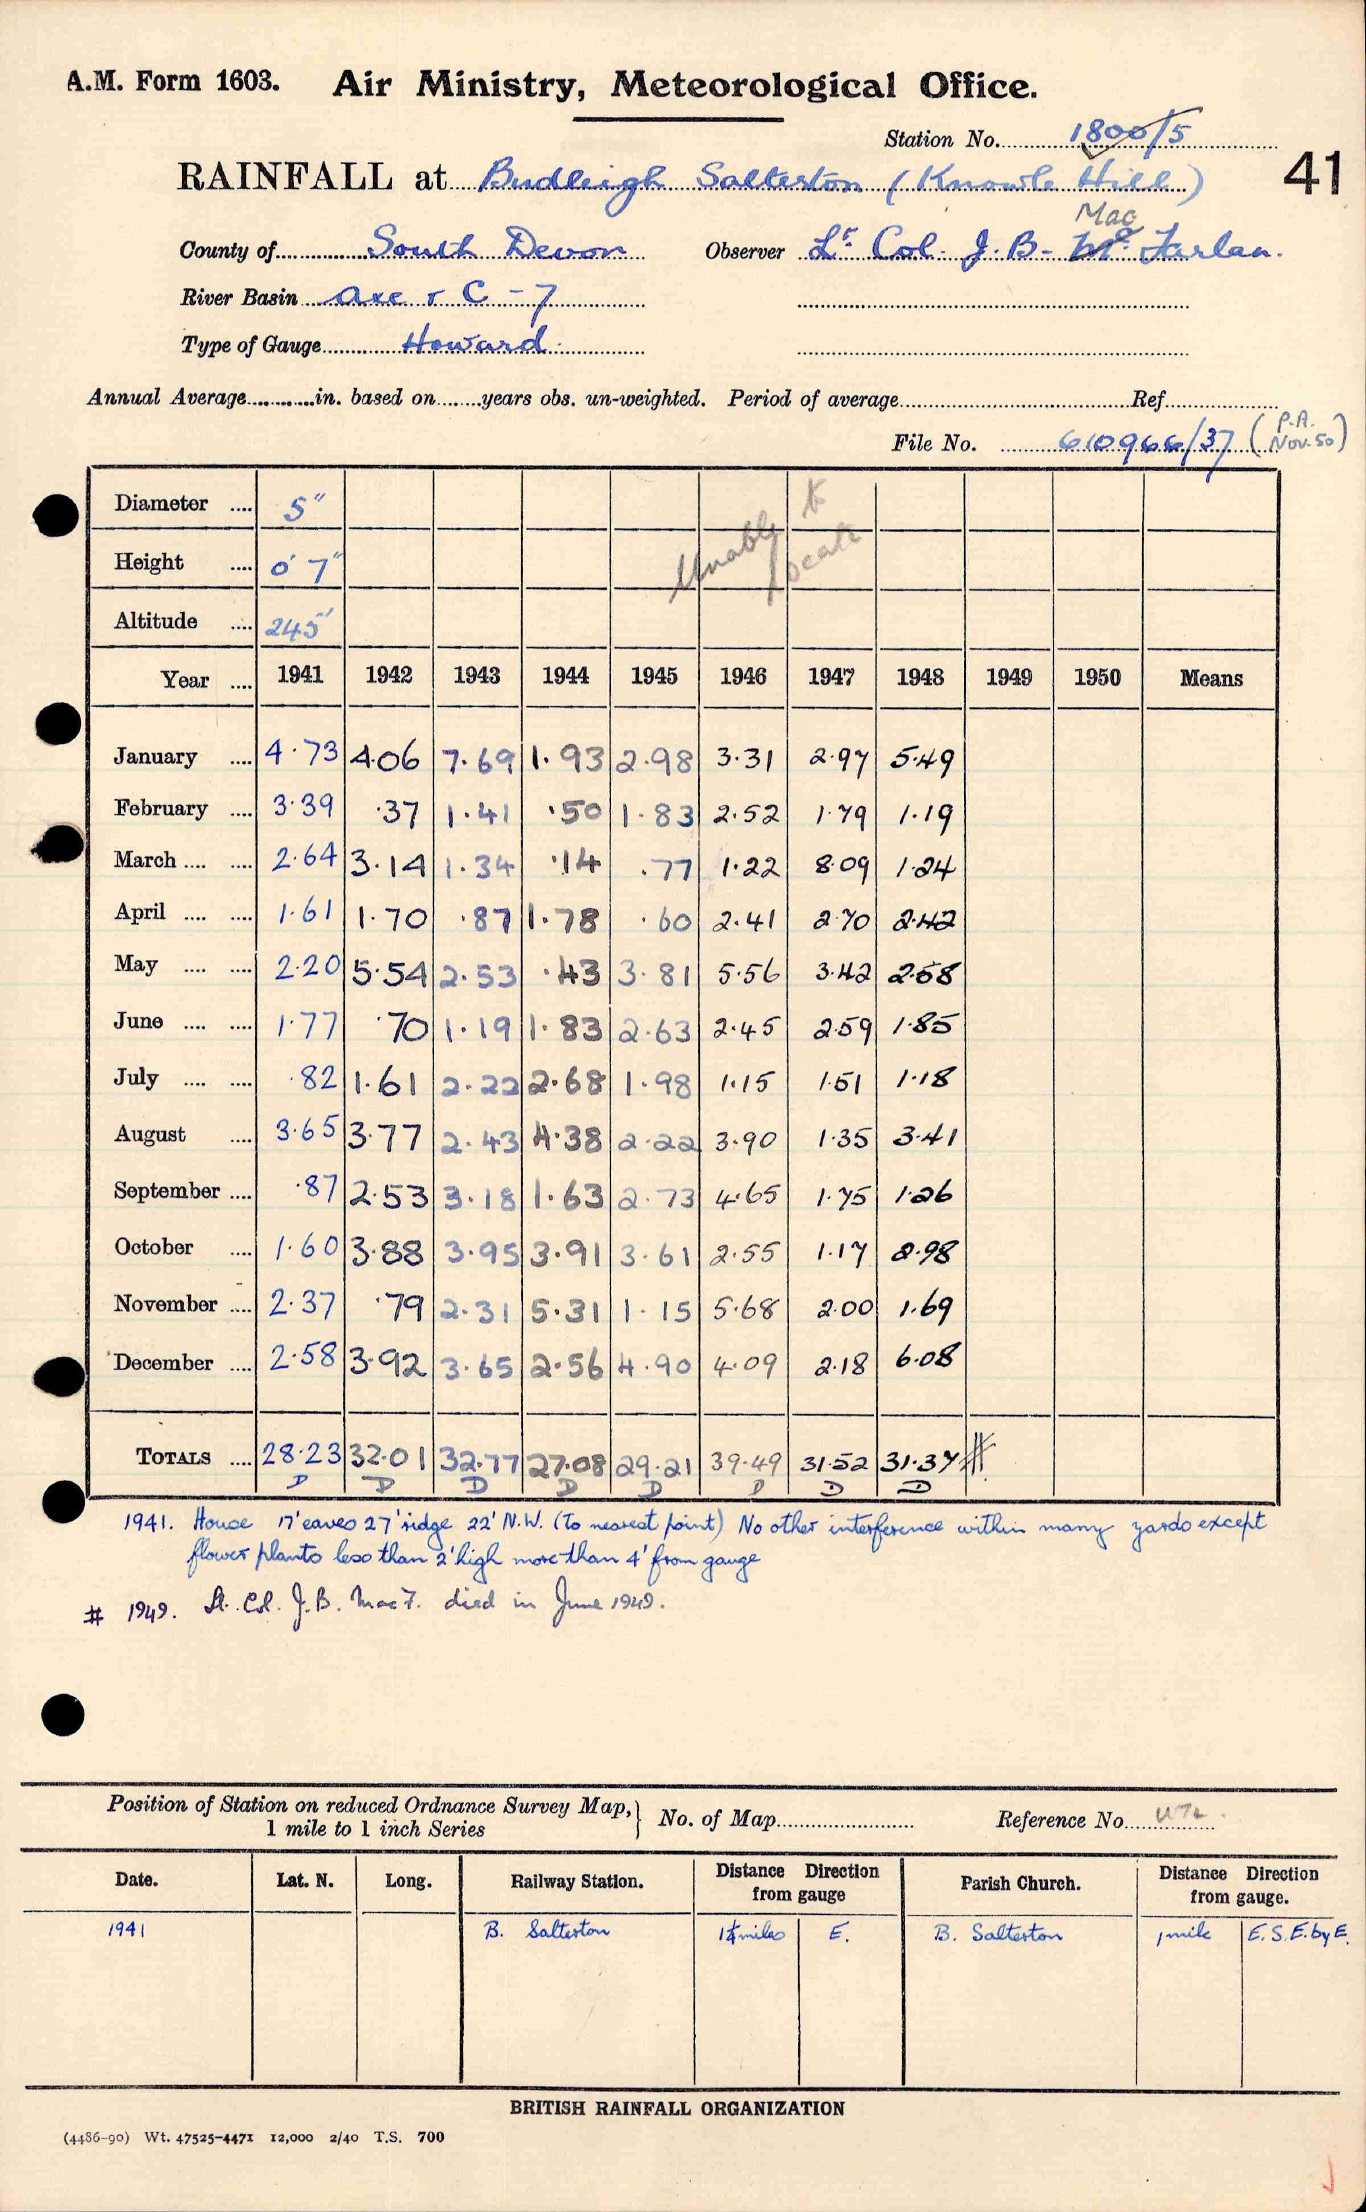 A.M. Form 1603. Air Ministry, Meteorological Office.
Station No. 1800/5
RAINFALL at Budleigh Salterton (Knowle Hill) 41
Mac
County of South Devon Observer Lt. Col. J. B. Mc Farlan.
River Basin Axe & C - 7
Type of Gauge Howard.
Annual Average in. based on years obs. un-weighted. Period of average Ref
File No. 610966/37 (P.A. Nov. 50)
Diameter 5"
Height 0' 7"
Altitude 245'
Unable to locate
Year 1941 1942 1943 1944 1945 1946 1947 1948 1949 1950 Means
January 4.73 4.06 7.69 1.93 2.98 3.31 2.97 5.49
February 3.39 .37 1.41 .50 1.83 2.52 1.79 1.19
March 2.64 3.14 1.34 .14 .77 1.22 8.09 1.24
April 1.61 1.70 .87 1.78 .60 2.41 2.70 2.42
May 2.20 5.54 2.53 .43 3.81 5.56 3.42 2.58
June 1.77 .70 1.19 1.83 2.63 2.45 2.59 1.85
July .82 1.61 2.22 2.68 1.98 1.15 1.51 1.18
August 3.65 3.77 2.43 4.38 2.22 3.90 1.35 3.41
September .87 2.53 3.18 1.63 2.73 4.65 1.75 1.26
October 1.60 3.88 3.95 3.91 3.61 2.55 1.17 2.98
November 2.37 .79 2.31 5.31 1.15 5.68 2.00 1.69
December 2.58 3.92 3.65 2.56 4.90 4.09 2.18 6.08
TOTALS 28.23 32.01 32.77 27.08 29.21 39.49 31.52 31.37 #
D D D D D D D D
1941. House 17' eaves 27' ridge 22' N.W. (to nearest point) No other interference within many yards except
flower plants less than 2' high more than 4' from gauge
# 1949. Lt. Col. J. B. Mac F. died in June 1949.
Position of Station on reduced Ordnance Survey Map, 1 mile to 1 inch Series } No. of Map Reference No.
Date. Lat. N. Long. Railway Station. Distance Direction from gauge Parish Church. Distance Direction from gauge.
1941 B. Salterton 1¼ miles E. B. Salterton 1 mile E.S.E. by E.
BRITISH RAINFALL ORGANIZATION
(4486-90) Wt. 47525-4471 12,000 2/40 T.S. 700